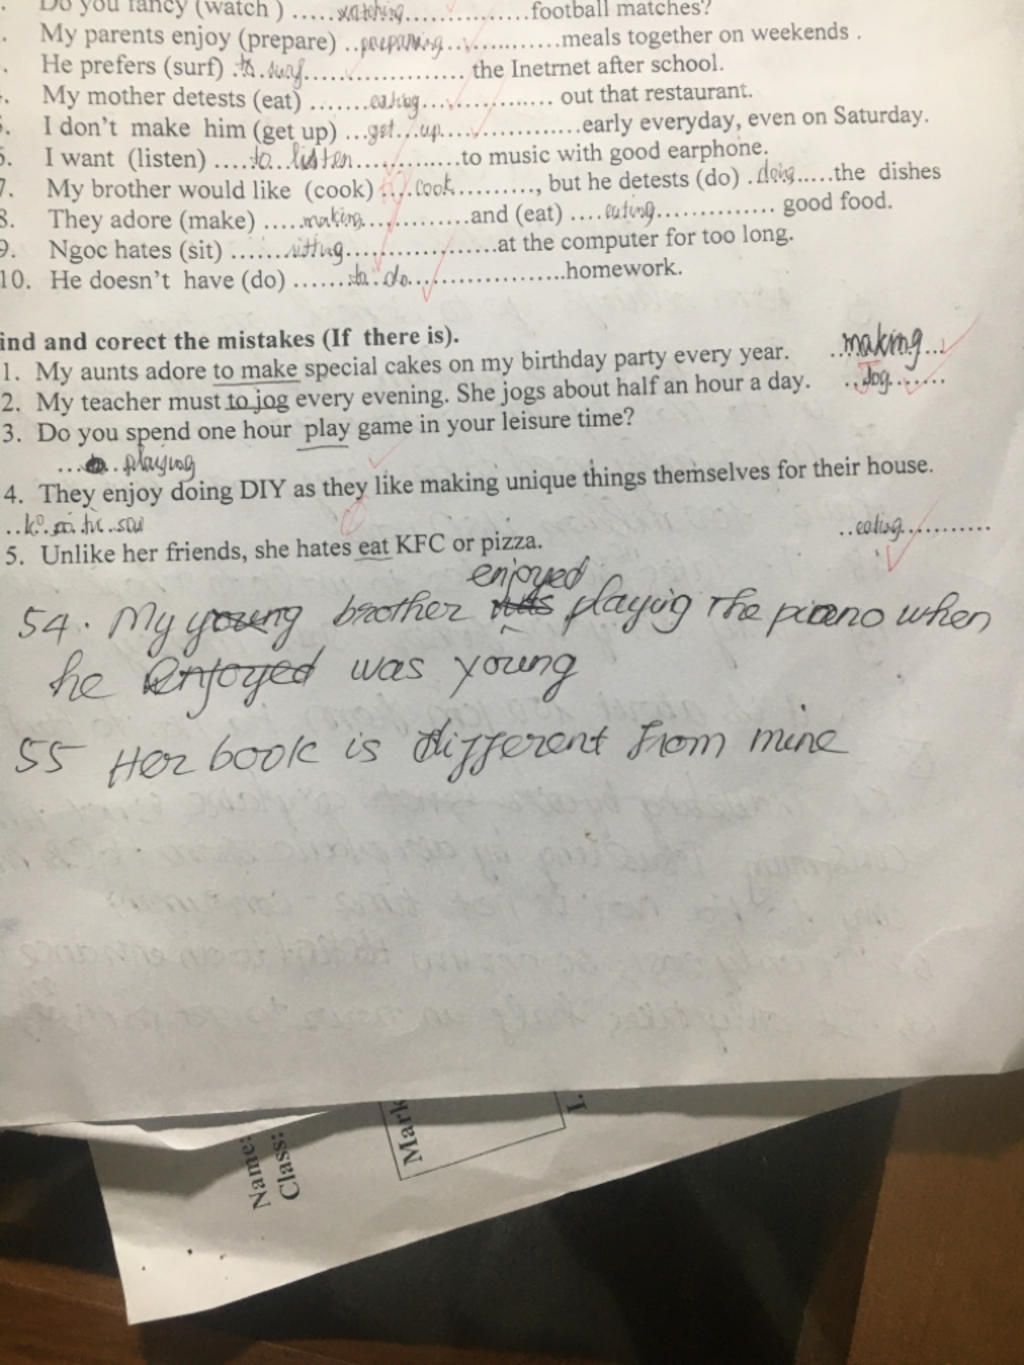 Do you fancy (watch ) .....watching.....................football matches?
. My parents enjoy (prepare) ..preparing.................meals together on weekends .
. He prefers (surf) .to.surf....................... the Inetrnet after school.
. My mother detests (eat) .......eating.................... out that restaurant.
5. I don't make him (get up) ...get...up.....................early everyday, even on Saturday.
6. I want (listen) .....to..listen................to music with good earphone.
7. My brother would like (cook) .....cook.........., but he detests (do) .doing.....the dishes
8. They adore (make) ......making..............and (eat) ....eating............... good food.
9. Ngoc hates (sit) .......sitting......................at the computer for too long.
10. He doesn't have (do) .......to..do.......................homework.
ind and corect the mistakes (If there is).
1. My aunts adore to make special cakes on my birthday party every year. ..making...
2. My teacher must to jog every evening. She jogs about half an hour a day. ..Jog.......
3. Do you spend one hour play game in your leisure time?
... .. playing
4. They enjoy doing DIY as they like making unique things themselves for their house.
..eating...........
5. Unlike her friends, she hates eat KFC or pizza.
enjoyed
54. My young brother was playing the piano when
he enjoyed was young
55 Her book is different from mine
Name:
Class:
Mark
I.